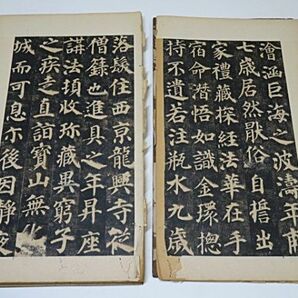 澮涵巨海之波濤年甫
七歲居然猒俗自誓出
家禮藏探經法華在手
宿命潛悟如識金環揔
持不遺若注瓶水九歲
落髮住西京龍興寺從
僧籙也進具之年昇座
講法頓收珍藏異窮子
之疾走直詣寶山無化
城而可息尒後因靜夜